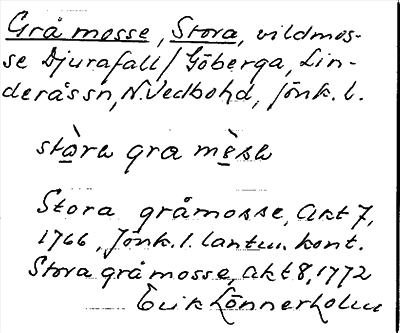 Grå mosse, Stora, vildmos-
se Djurafall/Göberga, Lin-
deråssn, N. Vedbohd, Jönk. l.
stòra gra mòsa
Stora gråmosse, Akt 7,
1766, Jönk. l. lantm. kont.
Stora gråmosse, akt 8, 1772
Erik Lönnerholm